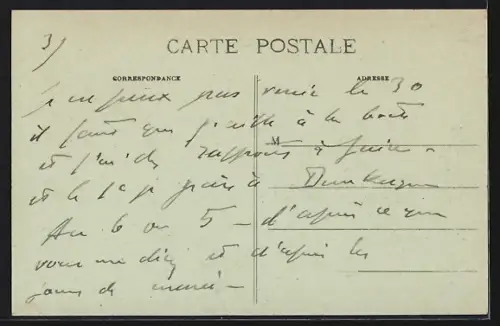 3)
CARTE POSTALE
CORRESPONDANCE
ADRESSE
je ne peux pas venir le 30
il faut que j'aille à la
M
et j'ai des rapports à faire -
et le je pars à Dunkerque
Au 6 ou 5 - d'après ce que
vous me direz et d'après les
jours de marée -